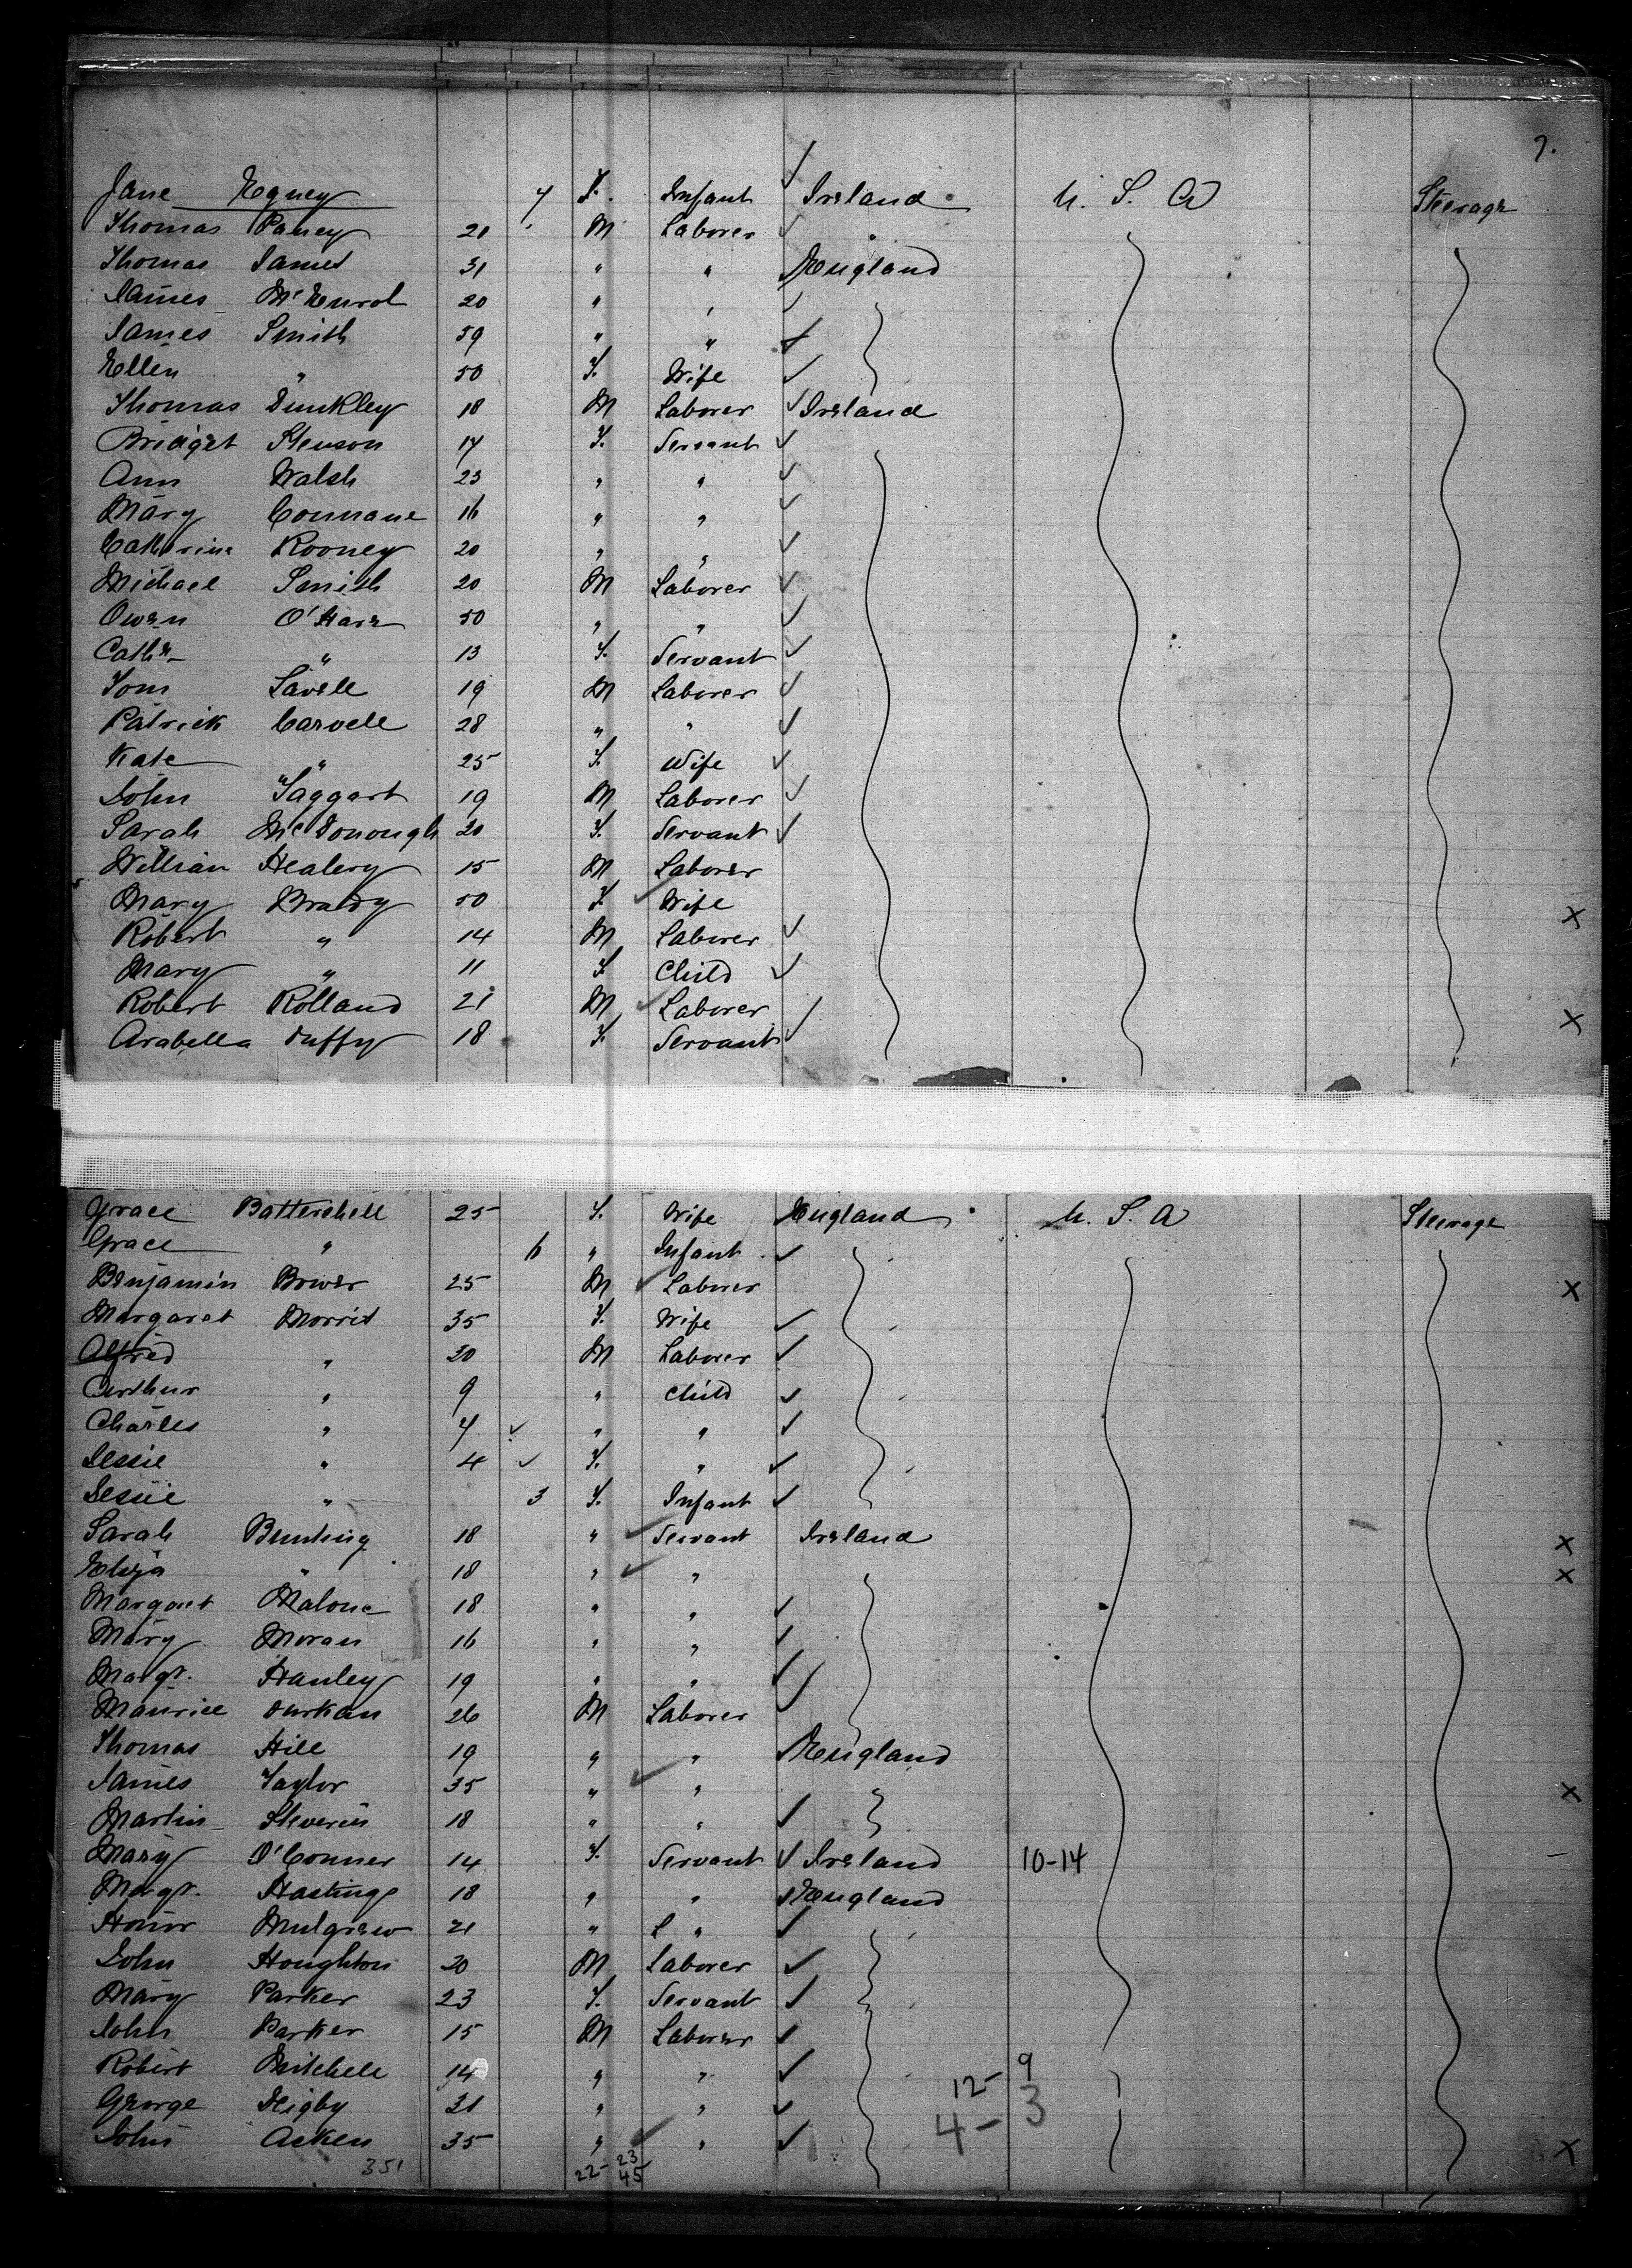 7.
Jane Egney 7 F. Infant Ireland U. S. A Steerage
Thomas 21 M Laborer
Thomas James 31 " " England
James 20 " "
James Smith 59 " "
Ellen " 50 F. Wife
Thomas Dunkley 18 M Laborer Ireland
Bridget Stenson 17 F. Servant
Ann Walsh 23 " "
Mary Connane 16 " "
Catherine Rooney 20 " "
Michael Smith 20 M Laborer
Owen O'Hare 50 " "
Cathe " 13 F. Servant
Tom Lavell 19 M Laborer
Patrick Carvell 28 " "
Kate " 25 F. Wife
John Taggart 19 M Laborer
Sarah McDonough 20 F. Servant
William Healery 15 M Laborer
Mary Brady 50 F Wife X
Robert " 14 M Laborer
Mary " 11 F Child
Robert Rolland 21 M Laborer X
Arabella Duffy 18 F. Servant
Grace Battershell 25 F. Wife England U. S. A Steerage
Grace " 6 " Infant
Benjamin Bower 25 M Laborer X
Margaret Morris 35 F. Wife
Alfred " 30 M Laborer
Arthur " 9 " Child
Charles " 7 " "
Jessie " 4 F. "
Jessie " 3 F. Infant
Sarah Bunting 18 " Servant Ireland X
Eliza " 18 " " X
Margaret Malone 18 " "
Mary Moran 16 " "
Margt. Hanley 19 " "
Maurice Durkan 26 M Laborer
Thomas Hill 19 " " England
James Taylor 35 " " X
Martin Steverin 18 " "
Mary O'Conner 14 F. Servant Ireland 10-14 -
Margt. Hastings 18 " " England
Honor Mulgrew 21 " "
John Houghton 20 M Laborer
Mary Parker 23 F. Servant
John Parker 15 M Laborer
Robert Mitchell 14 " " 12- 9
George Higby 31 " " 4- 3
John Acken 35 " " X
351 22- 23
45